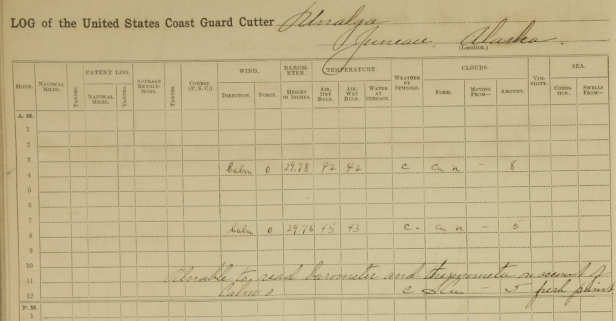 LOG of the United States Coast Guard Cutter Unalga
Juneau, Alaska.
(Location.)
HOUR. NAUTICAL MILES. TENTHS. PATENT LOG. NAUTICAL MILES. TENTHS. AVERAGE REVOLUTIONS. TENTHS. COURSE (P. S. C.) WIND. DIRECTION. FORCE. BAROMETER. HEIGHT IN INCHES. TEMPERATURE. AIR, DRY BULB. AIR, WET BULB. WATER AT SURFACE. WEATHER BY SYMBOLS. CLOUDS. FORM. MOVING FROM— AMOUNT. VISIBILITY. SEA. CONDITION. SWELLS FROM—
A. M.
1
2
3
4 Calm 0 29.78 42 42 c cu n - 8
5
6
7
8 Calm 0 29.76 45 43 c - cu n - 5
9
10
11 Unable to read barometer and thermometer on account of
12 Calm 0 c - 5 fresh paint
P. M.
1